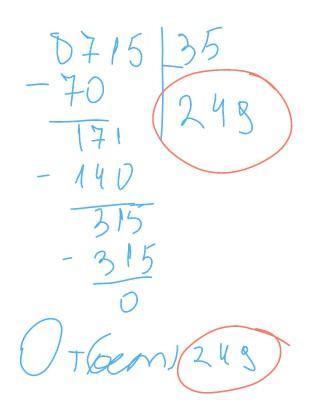 8715 35
- 70 249
171
- 140
315
- 315
0
Ответ 249